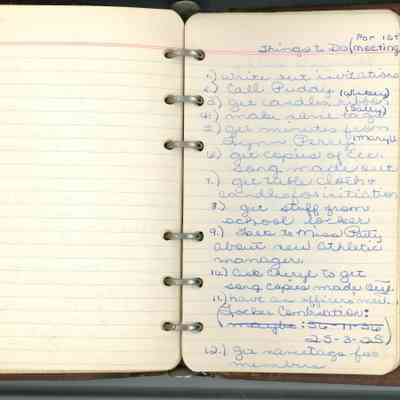 For 1st
Things to Do (meeting
1.) write out invitations
2.) Call Puddy (Whiskey)
3.) get candles, ribbon
(Sally)
4.) make name tags
5.) get minutes from
Lynn Perry (Mary
6.) get copies of Ecc.
song made out
7.) get table cloth &
candles for initiation
8.) get stuff from
school locker
9.) Talk to Miss Patty
about new Athletic
manager
10.) Ask Cheryl to get
song copies made
11.) have an officers meet.
Locker Combination:
(maybe: 56-11-56
25-3-25)
12.) get nametags for
members